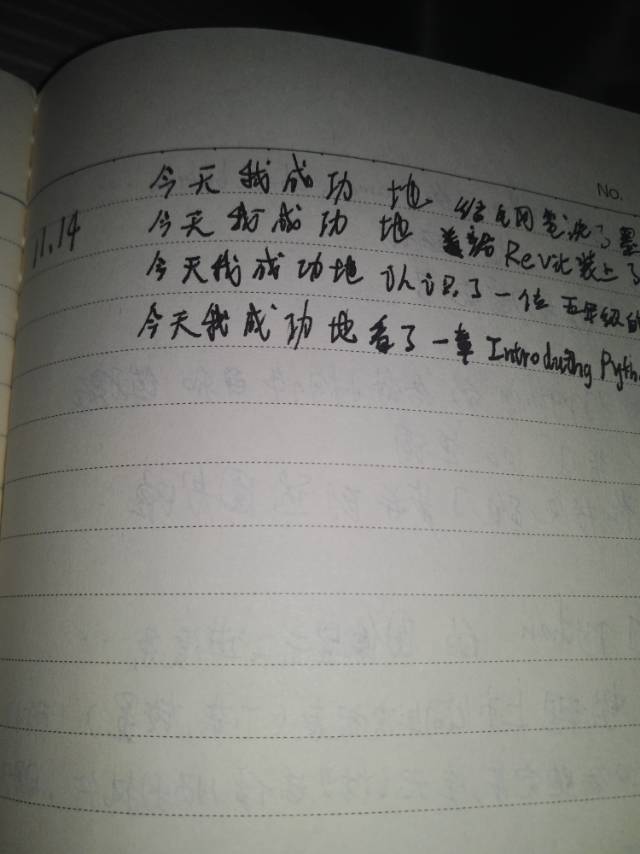 No.
11.14
今天我成功地给毛网笔洗了墨
今天我成功地给Revit装上了
今天我成功地认识了一位五年级的
今天我成功地看了一章 Introducing Pyth